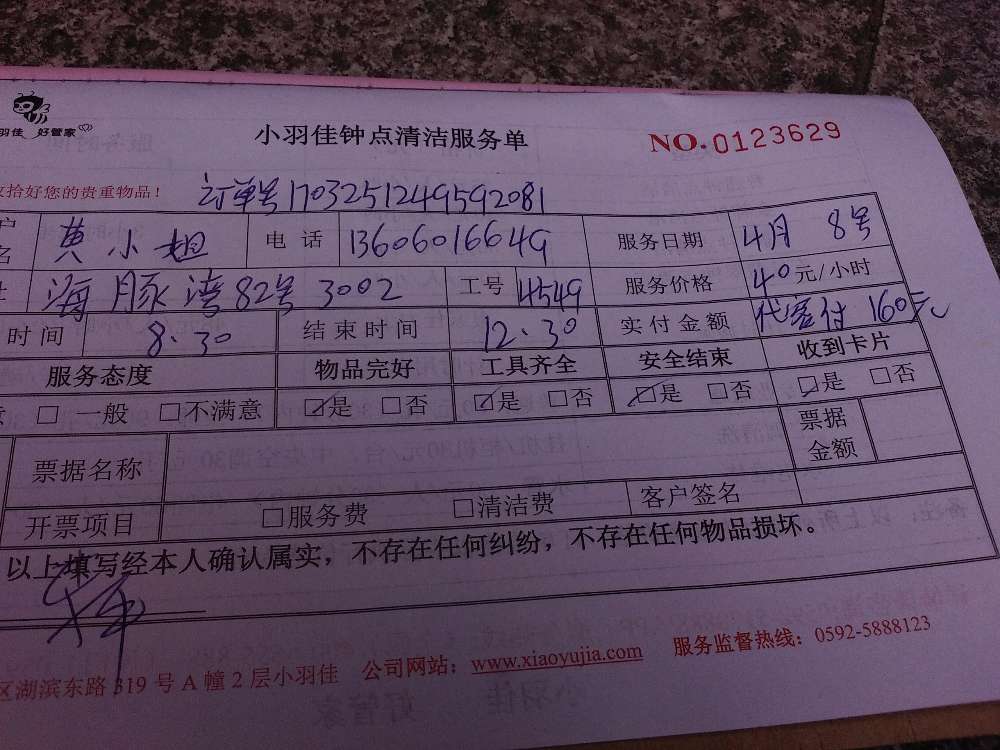 羽佳 好管家
小羽佳钟点清洁服务单 NO.0123629
拾好您的贵重物品！ 订单号1703251249592081
户名 黄小姐 电话 13606016649 服务日期 4月8号
址 海豚湾82号3002 工号 4549 服务价格 40元/小时
时间 8.30 结束时间 12.30 实付金额 代客付160元
服务态度 物品完好 工具齐全 安全结束 收到卡片
意 □ 一般 □不满意 ☑是 □否 ☑是 □否 ☑是 □否 ☑是 □否
票据名称 票据金额
开票项目 □服务费 □清洁费 客户签名
以上填写经本人确认属实，不存在任何纠纷，不存在任何物品损坏。
区湖滨东路319号A幢2层小羽佳 公司网站：www.xiaoyujia.com 服务监督热线：0592-5888123